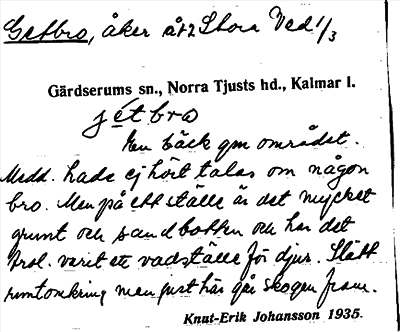 Getbro, åker å 42 Stora Ved 1/3
Gärdserums sn., Norra Tjusts hd., Kalmar l.
jétbro
En bäck gm området.
Medd. hade ej hört talas om någon
bro. Men på ett ställe är det mycket
grunt och sandbotten och har det
trol. varit ett vadställe för djur. Slätt
runtomkring men just här går skogen fram.
Knut-Erik Johansson 1935.